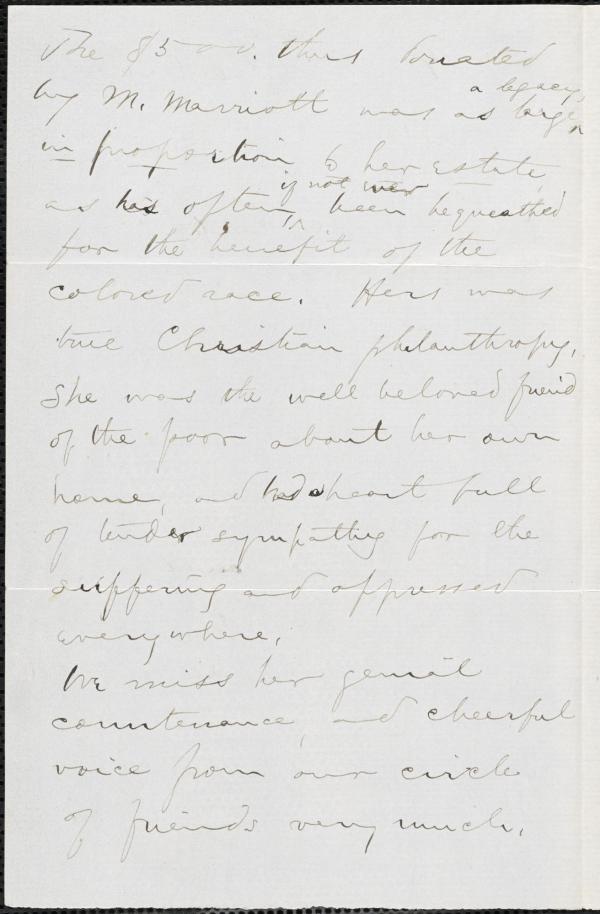 The $500. thus donated
by M. Marriott was as large a legacy,
in proportion to her estate
as has often, if not ever been bequeathed
for the benefit of the
colored race. Hers was
true Christian philanthropy.
She was the well beloved friend
of the poor about her own
home, and had a heart full
of tender sympathy for the
suffering and oppressed
everywhere.
We miss her genial
countenance, and cheerful
voice from our circle
of friends very much.